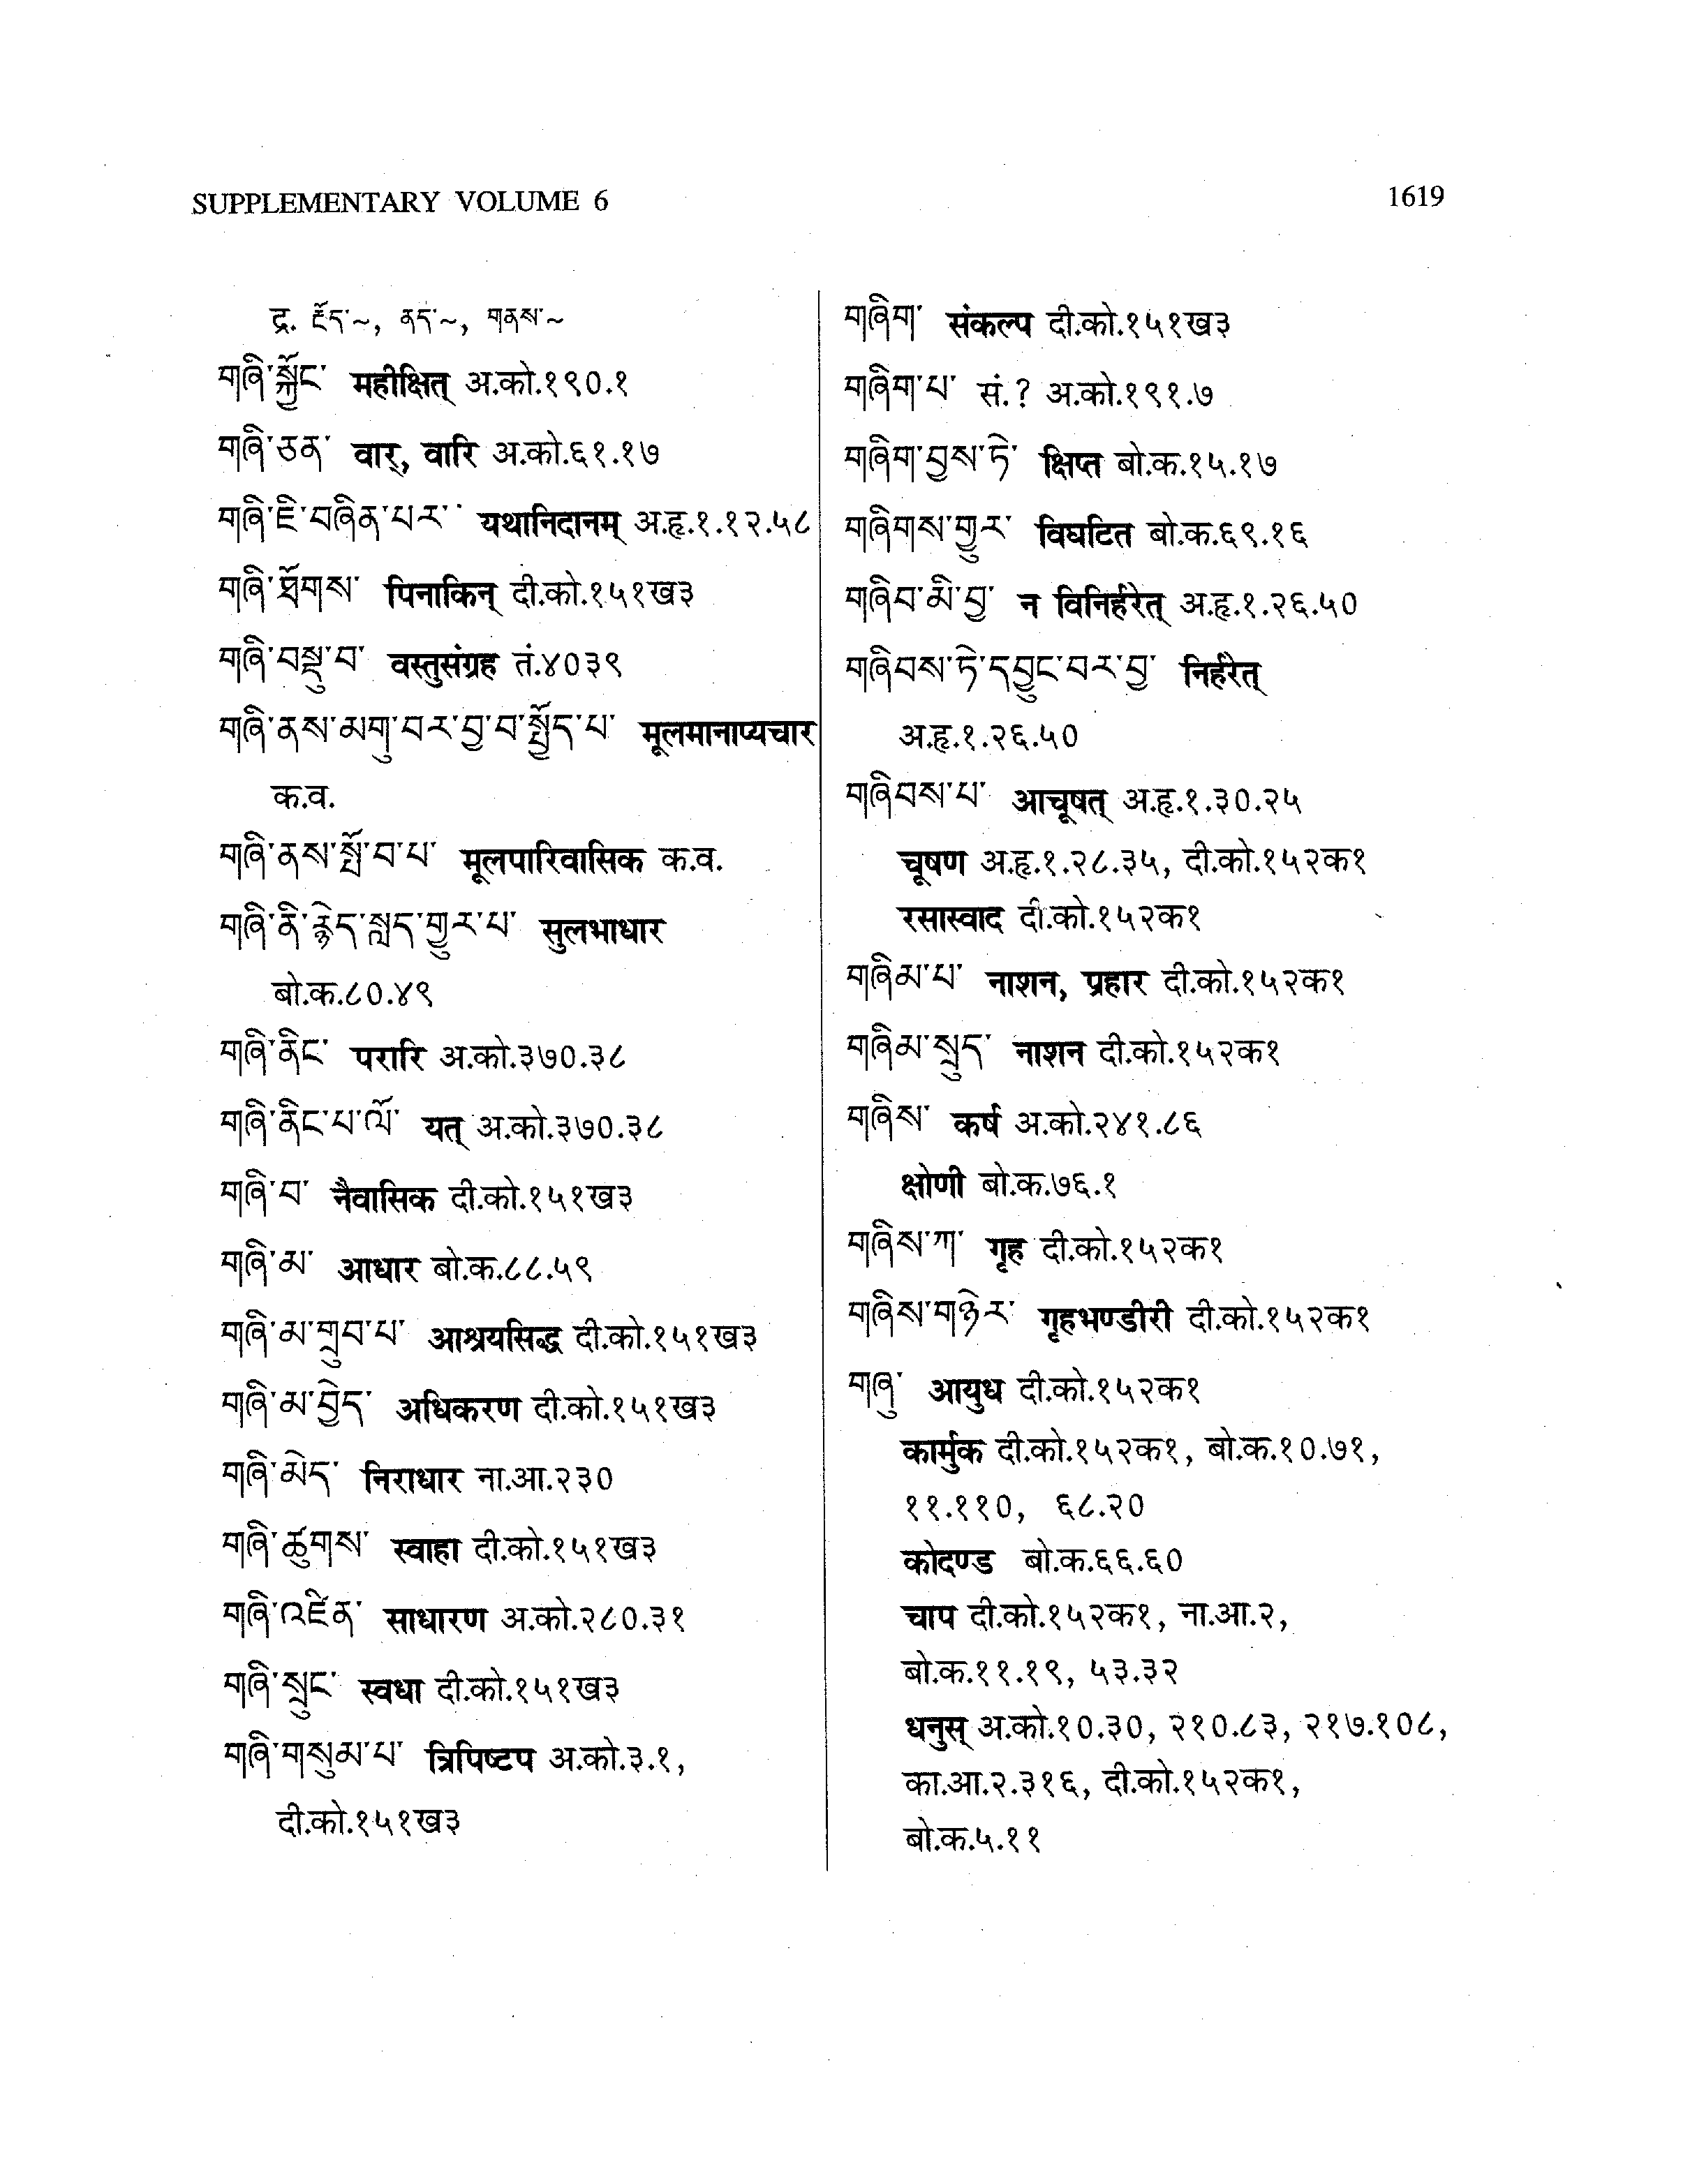 SUPPLEMENTARY VOLUME 6
1619
द्र. རྫོད་~, ནད་~, གནས་~
གཞི་སྐྱོང་ महीक्षित् अ.को.१९०.१
གཞི་ཅན་ वार्, वारि अ.को.६१.१७
གཞི་ཇི་བཞིན་པར་ यथानिदानम् अ.हृ.१.१२.५८
གཞི་ཐོགས་ पिनाकिन् दी.को.१५१ख३
གཞི་བསྡུ་བ་ वस्तुसंग्रह तं.४०३९
གཞི་ནས་མགུ་བར་བྱ་བ་སྤྱོད་པ་ मूलमानाप्यचार
क.व.
གཞི་ནས་སྤོ་བ་པ་ मूलपारिवासिक क.व.
གཞི་ནི་རྙེད་སླད་གྱུར་པ་ सुलभाधार
बो.क.८०.४९
གཞི་ནིང་ परारि अ.को.३७०.३८
གཞི་ནིང་པ་ལོ་ यत् अ.को.३७०.३८
གཞི་བ་ नैवासिक दी.को.१५१ख३
གཞི་མ་ आधार बो.क.८८.५९
གཞི་མ་གྲུབ་པ་ आश्रयसिद्ध दी.को.१५१ख३
གཞི་མ་བྱེད་ अधिकरण दी.को.१५१ख३
གཞི་མེད་ निराधार ना.आ.२३०
གཞི་ཚུགས་ स्वाहा दी.को.१५१ख३
གཞི་འཛིན་ साधारण अ.को.२८०.३१
གཞི་སྲུང་ स्वधा दी.को.१५१ख३
གཞི་གསུམ་པ་ त्रिपिष्टप अ.को.३.१,
दी.को.१५१ख३
གཞིག་ संकल्प दी.को.१५१ख३
གཞིག་པ་ सं.? अ.को.१९१.७
གཞིག་བྱས་ཏེ་ क्षिप्त बो.क.१५.१७
གཞིགས་གྱུར་ विघटित बो.क.६९.१६
གཞིབ་མི་བྱ་ न विनिर्हरेत् अ.हृ.१.२६.५०
གཞིབས་ཏེ་དབྱུང་བར་བྱ་ निर्हरेत्
अ.हृ.१.२६.५०
གཞིབས་པ་ आचूषत् अ.हृ.१.३०.२५
चूषण अ.हृ.१.२८.३५, दी.को.१५२क१
रसास्वाद दी.को.१५२क१
གཞིམ་པ་ नाशन, प्रहार दी.को.१५२क१
གཞིམ་སྲུད་ नाशन दी.को.१५२क१
གཞིས་ कर्ष अ.को.२४१.८६
क्षोणी बो.क.७६.१
གཞིས་ཀ་ गृह दी.को.१५२क१
གཞིས་གཉེར་ गृहभण्डीरी दी.को.१५२क१
གཞུ་ आयुध दी.को.१५२क१
कार्मुक दी.को.१५२क१, बो.क.१०.७१,
११.११०, ६८.२०
कोदण्ड बो.क.६६.६०
चाप दी.को.१५२क१, ना.आ.२,
बो.क.११.१९, ५३.३२
धनुस् अ.को.१०.३०, २१०.८३, २१७.१०८,
का.आ.२.३१६, दी.को.१५२क१,
बो.क.५.११